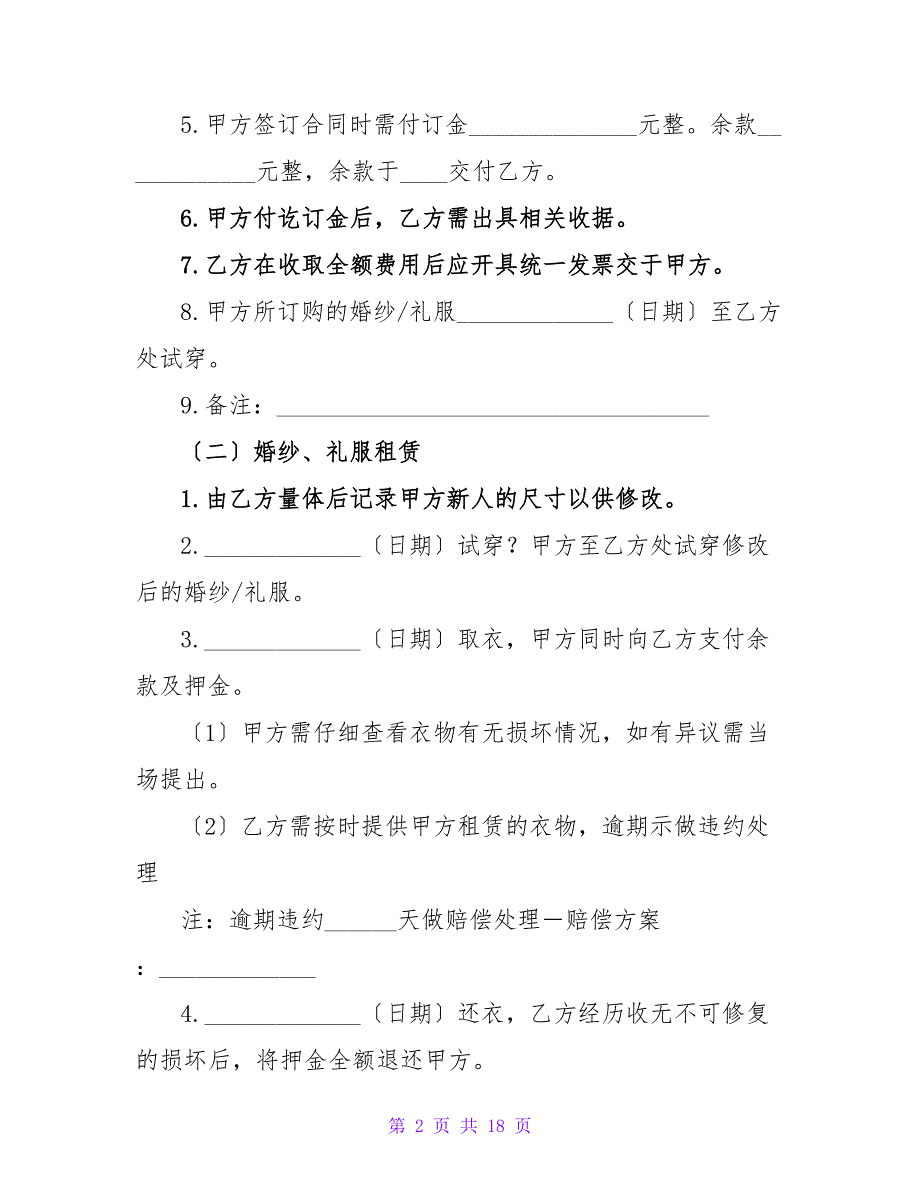 5.甲方签订合同时需付订金______________元整。余款__
__________元整，余款于____交付乙方。
6.甲方付讫订金后，乙方需出具相关收据。
7.乙方在收取全额费用后应开具统一发票交于甲方。
8.甲方所订购的婚纱/礼服_____________〔日期〕至乙方
处试穿。
9.备注：____________________________________
〔二〕婚纱、礼服租赁
1.由乙方量体后记录甲方新人的尺寸以供修改。
2._____________〔日期〕试穿？甲方至乙方处试穿修改
后的婚纱/礼服。
3._____________〔日期〕取衣，甲方同时向乙方支付余
款及押金。
〔1〕甲方需仔细查看衣物有无损坏情况，如有异议需当
场提出。
〔2〕乙方需按时提供甲方租赁的衣物，逾期示做违约处
理
注：逾期违约______天做赔偿处理－赔偿方案
：_____________
4._____________〔日期〕还衣，乙方经历收无不可修复
的损坏后，将押金全额退还甲方。
第 2 页 共 18 页